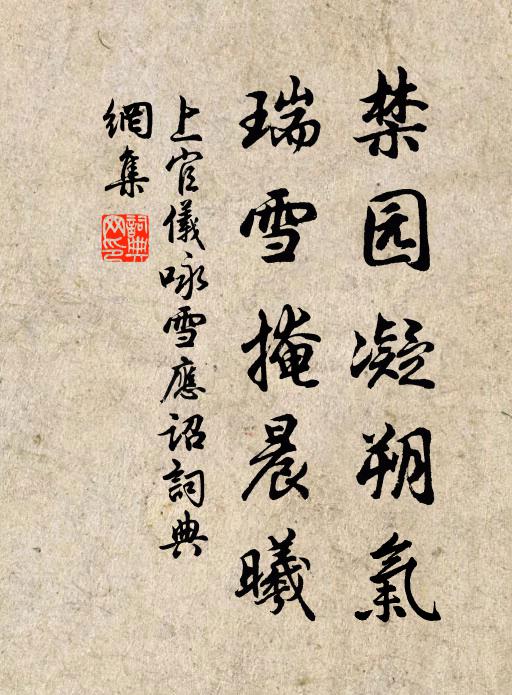 禁园凝朔氣
瑞雪掩晨曦
上官儀咏雪應詔詞典
網集
詞典網印